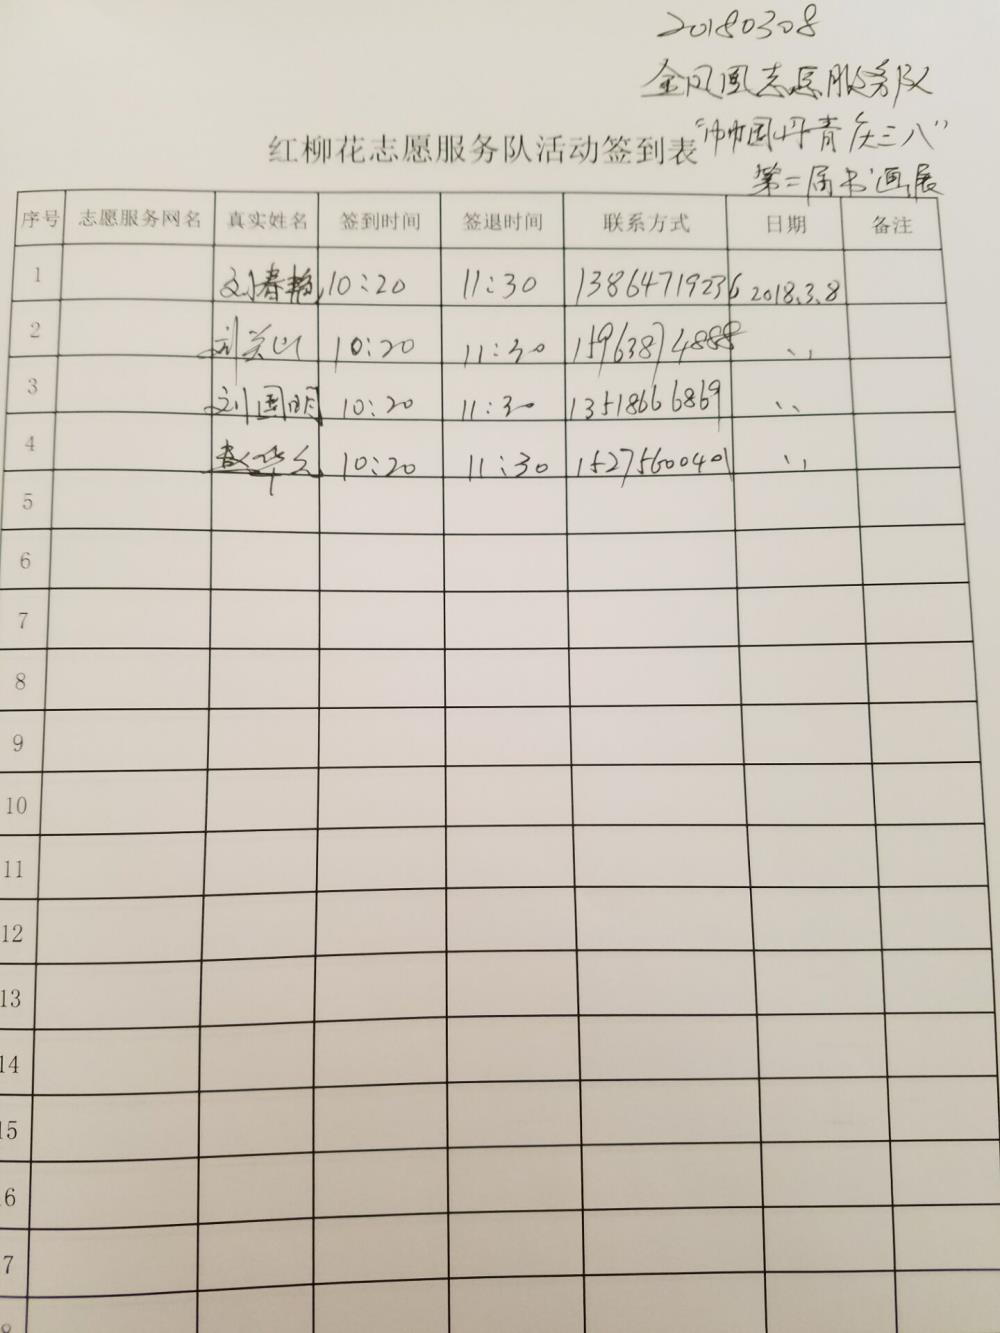 20180308
金凤凰志愿服务队
"巾帼丹青庆三八"
红柳花志愿服务队活动签到表
第二届书画展
序号 志愿服务网名 真实姓名 签到时间 签退时间 联系方式 日期 备注
1 刘春艳 10:20 11:30 13864719236 2018.3.8
2 刘关山 10:20 11:30 15963874888 、、
3 刘国明 10:20 11:30 13518666869 、、
4 10:20 11:30 15275600401 、、
5
6
7
8
9
10
11
12
13
14
15
6
7